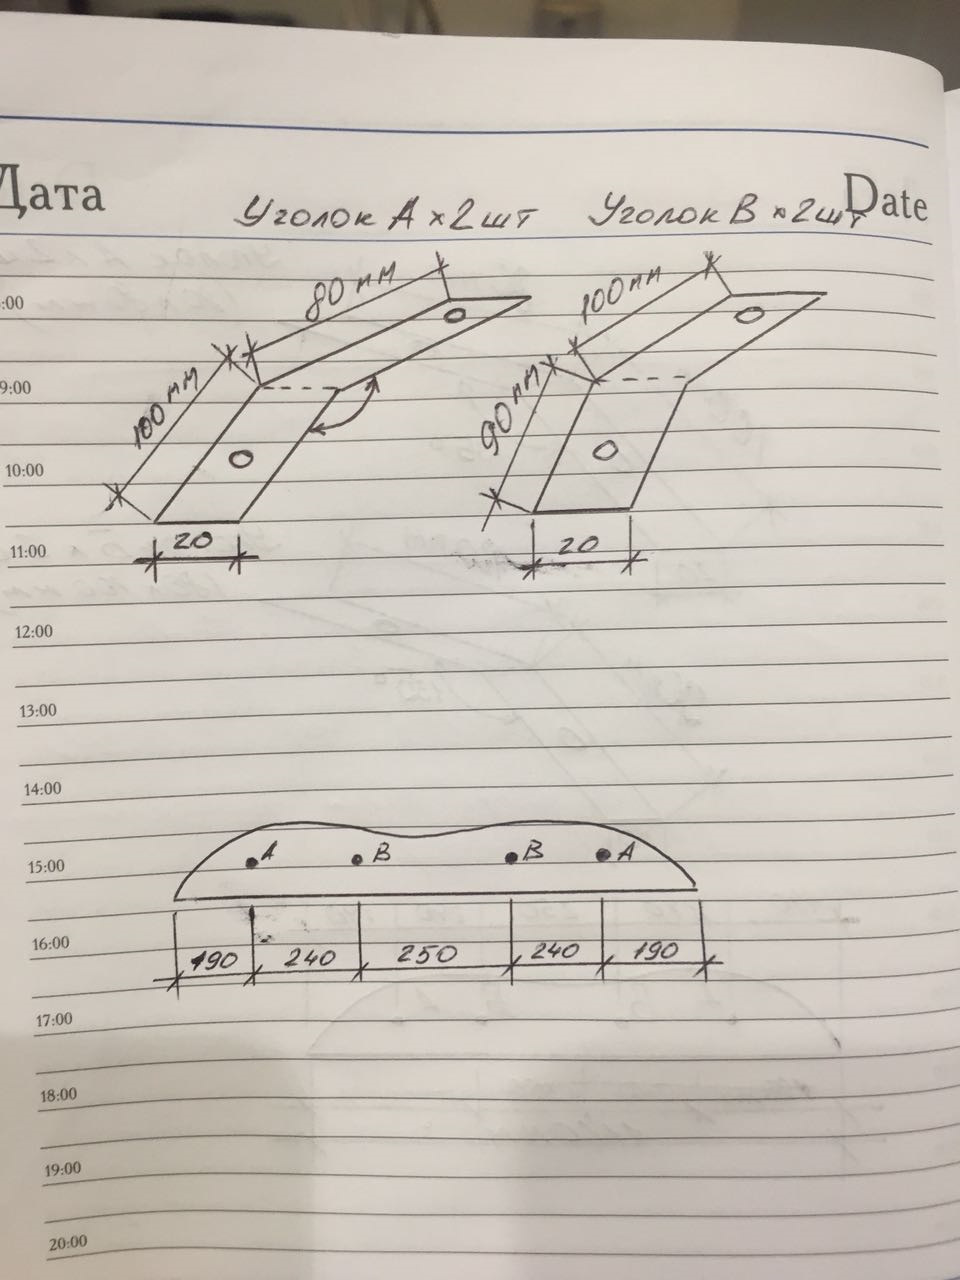 Дата Date
Уголок А x 2 шт Уголок В x 2 шт
80 мм
100 мм
100 мм
90 мм
20
20
:00
9:00
10:00
11:00
12:00
13:00
14:00
15:00
А В В А
16:00
190 240 250 240 190
17:00
18:00
19:00
20:00